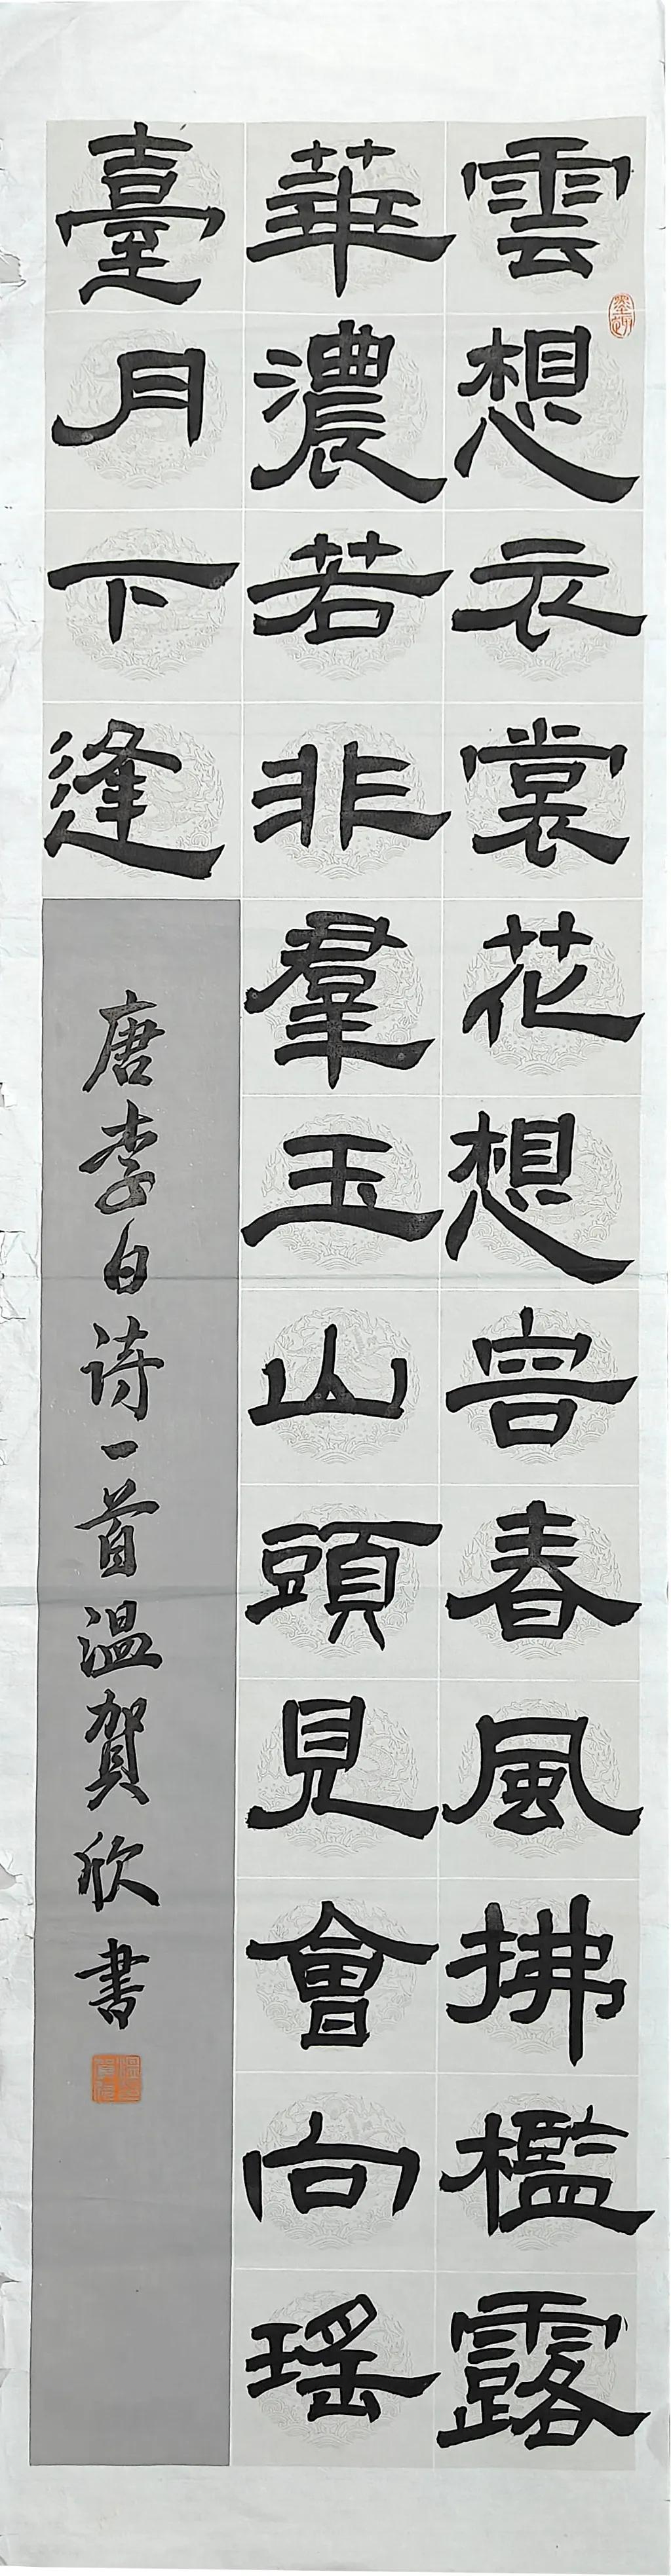 雲想衣裳花想容春風拂檻露
華濃若非羣玉山頭見會向瑤
臺月下逢
唐李白诗一首温贺欣書